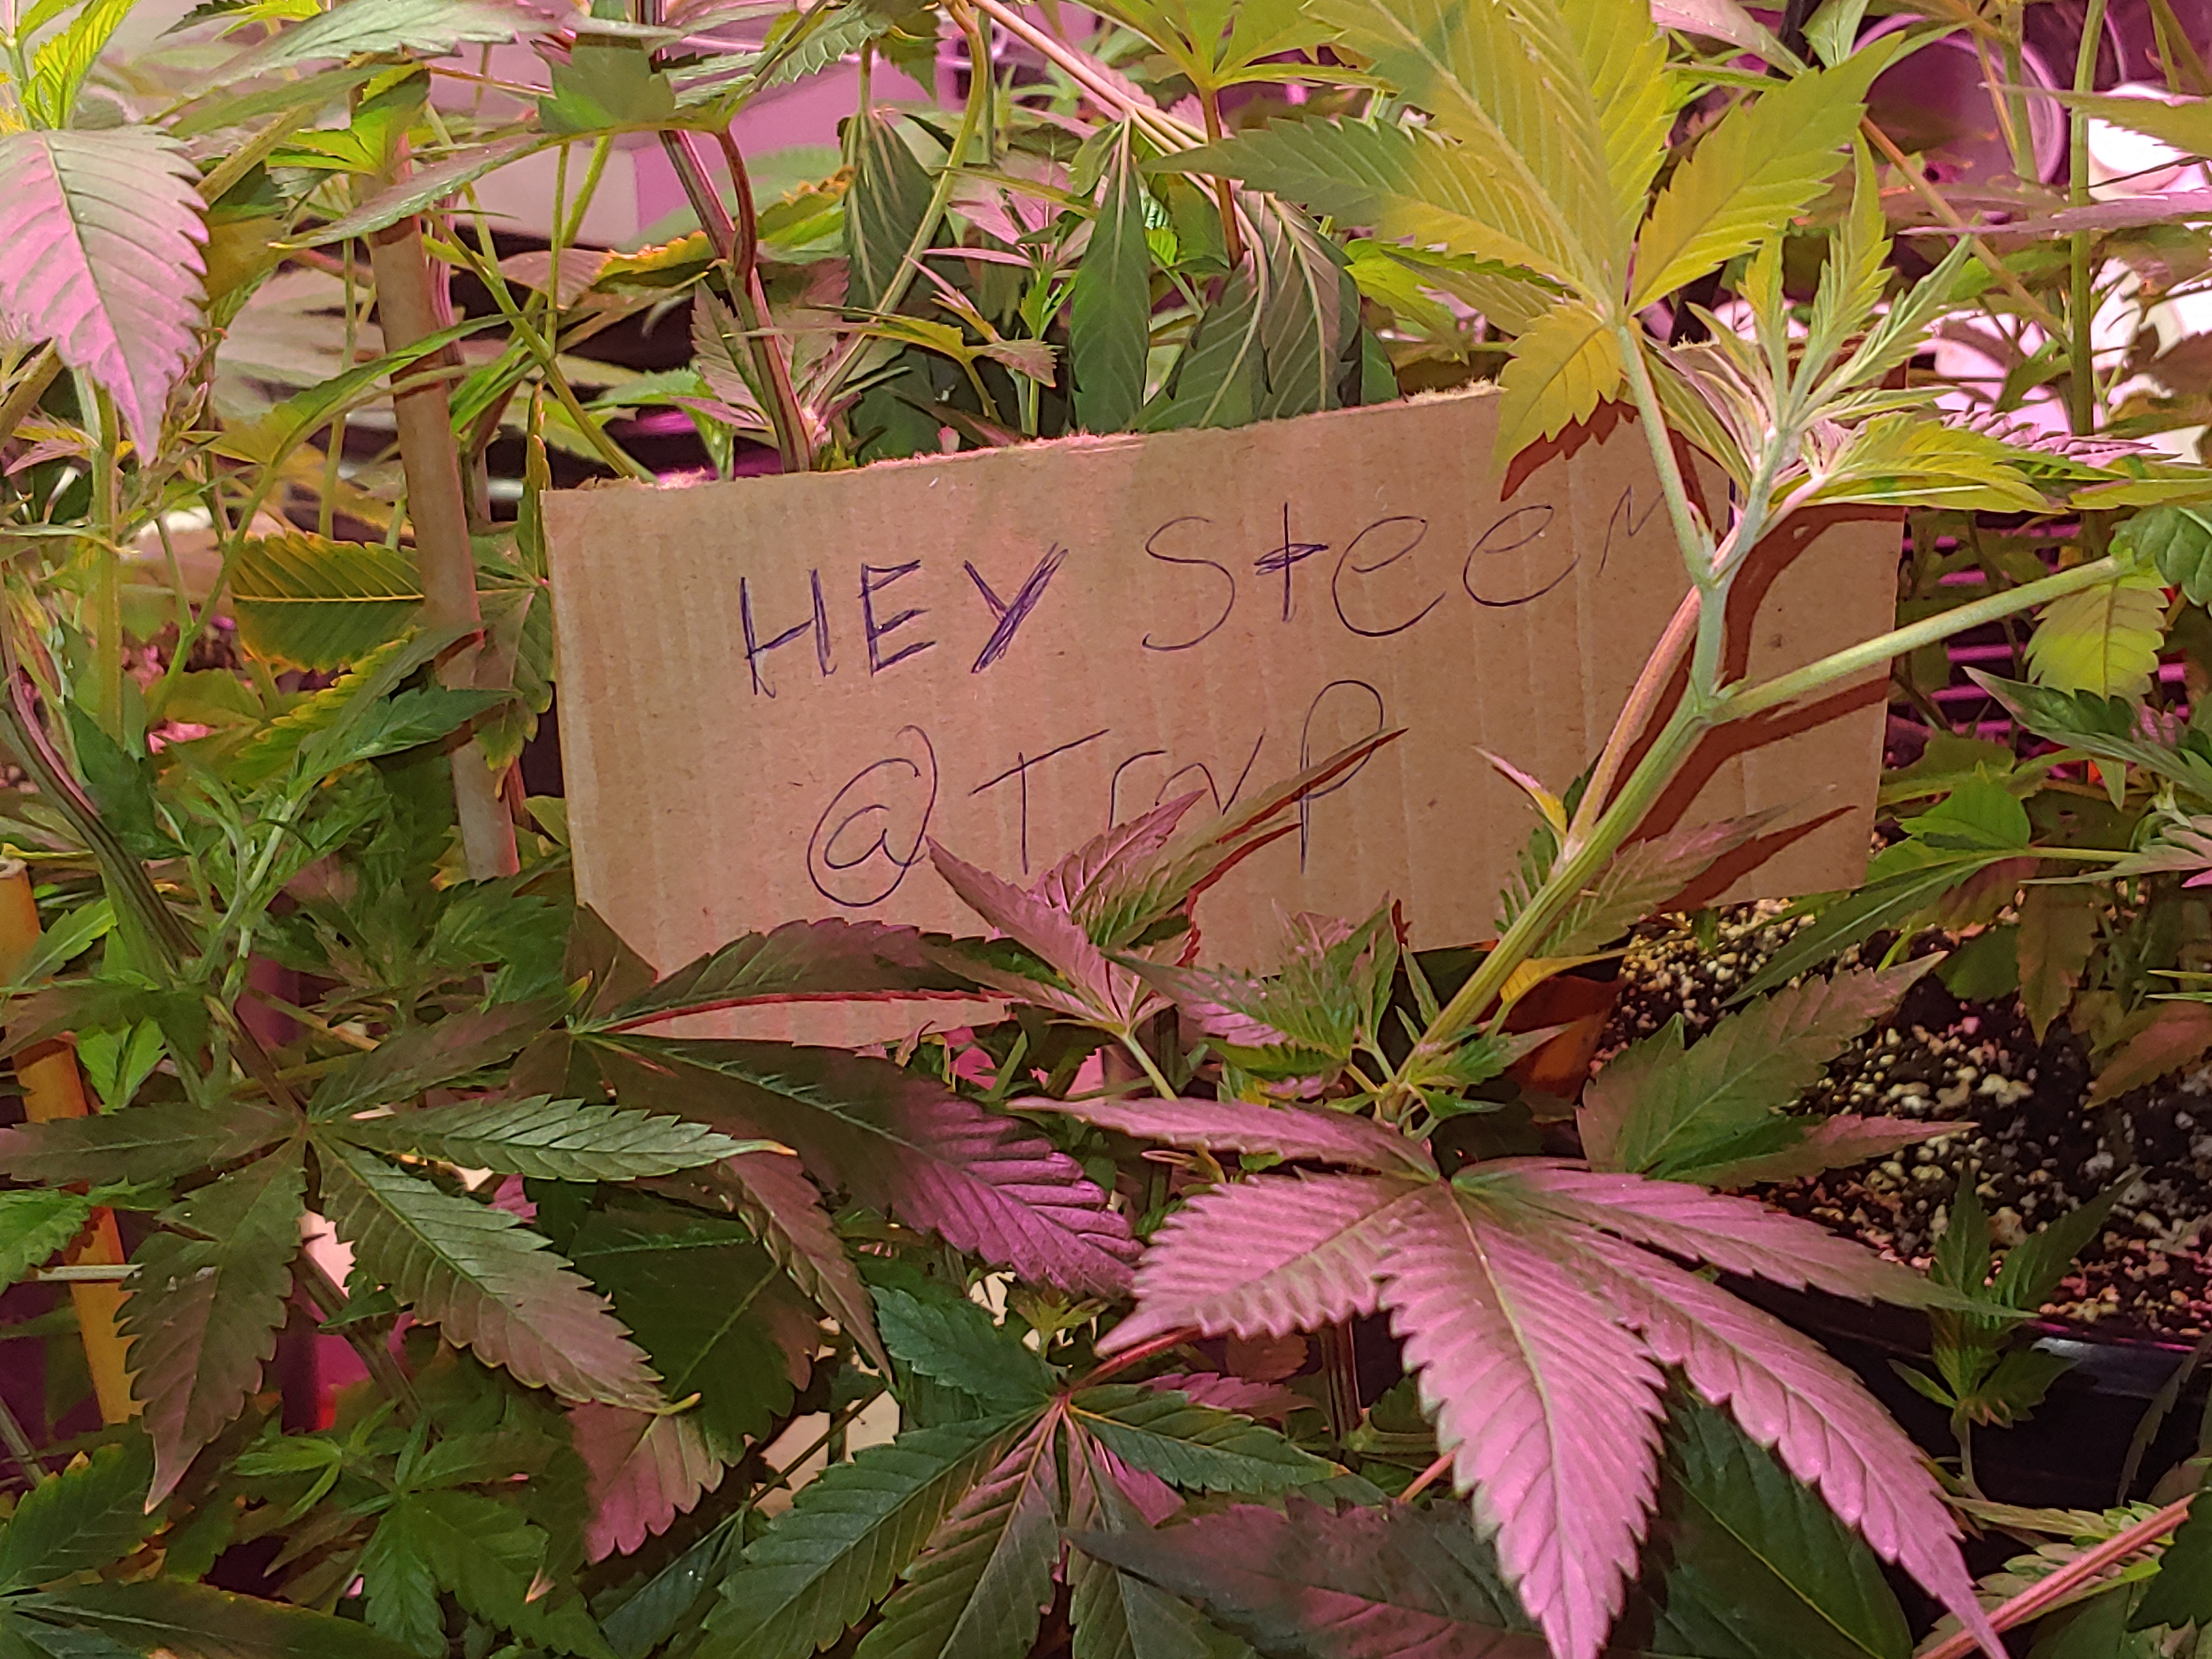 HEY Steem
@Trvp